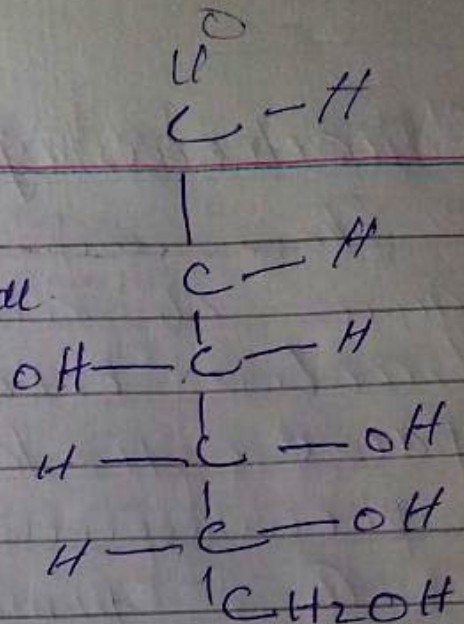 O
C - H
C - H
OH - C - H
H - C - OH
H - C - OH
CH2OH